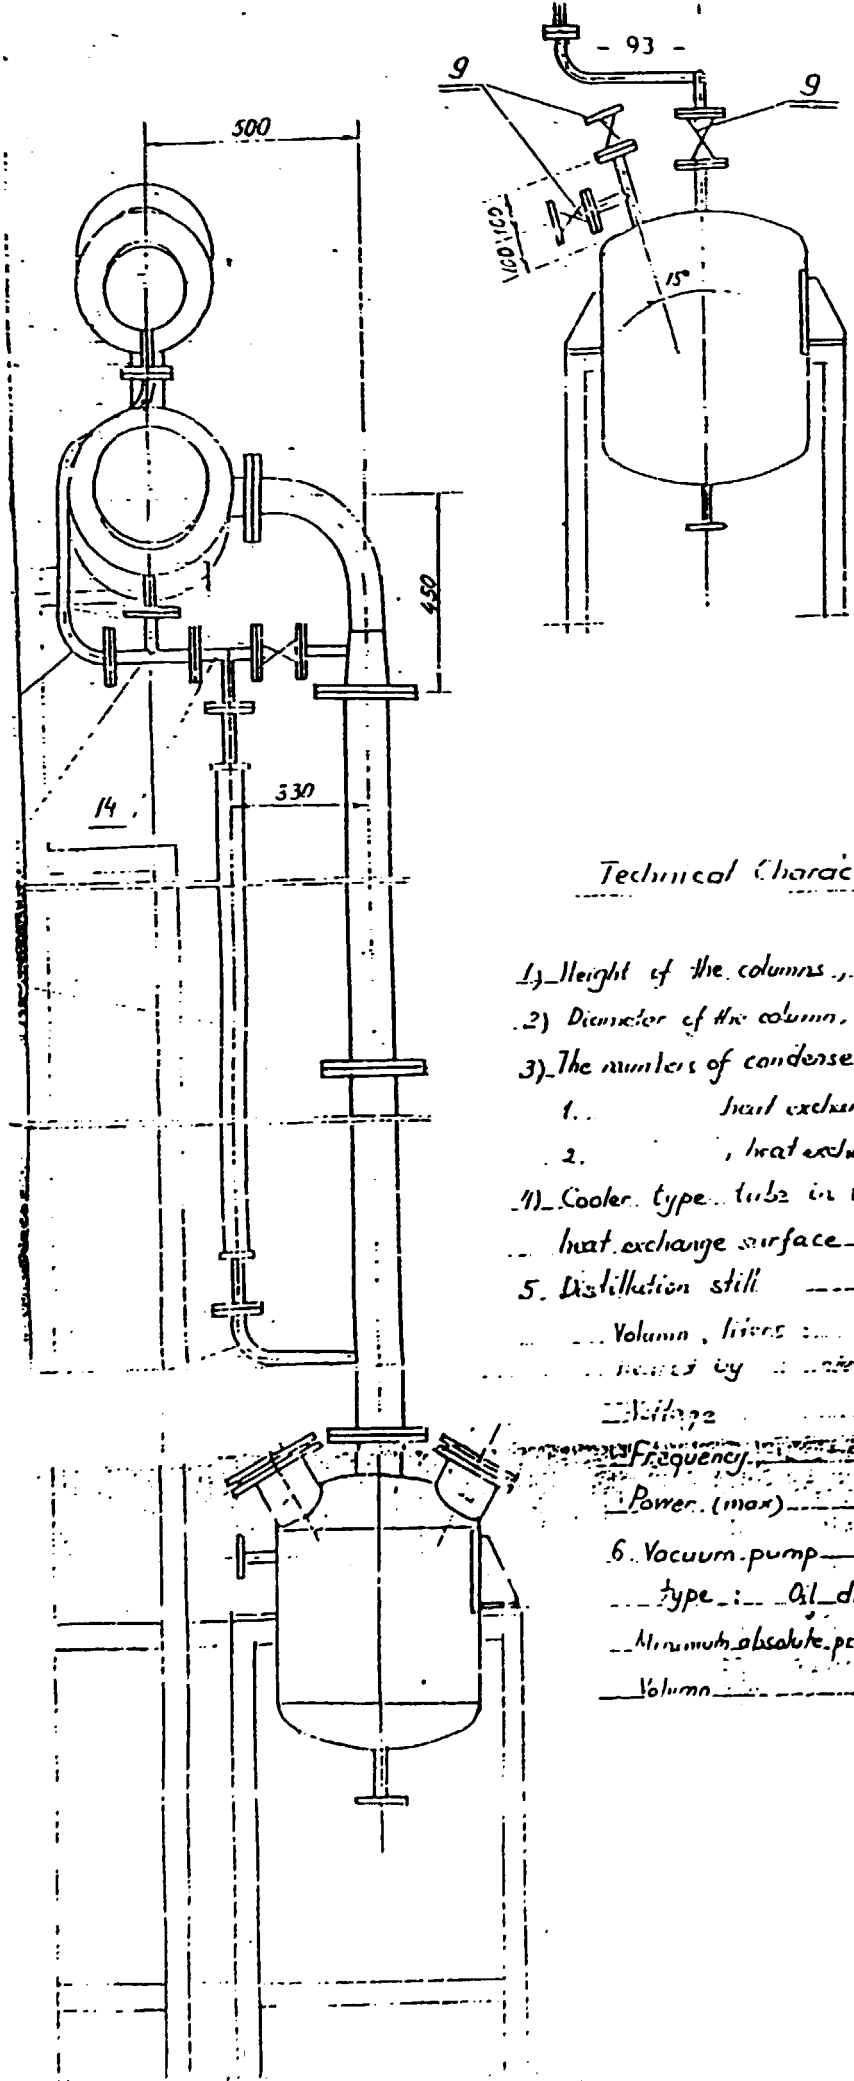 - 93 -
9
9
500
100 100
15°
450
330
14
Technical Charac
1) Height of the columns,
2) Diameter of the column,
3) The numbers of condense
1. heat exchan
2. , heat exch
4) Cooler type tube in
heat exchange surface
5. Distillation still
Volumn, liters :
heated by :
Voltage
Frequency
Power (max)
6. Vacuum pump
type : Oil d
Minimum absolute pr
Volumn